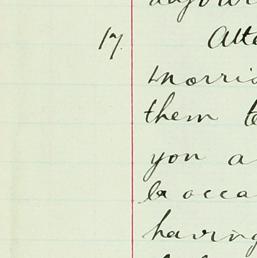 17. Atte
Morris
them te
you a
occa
having